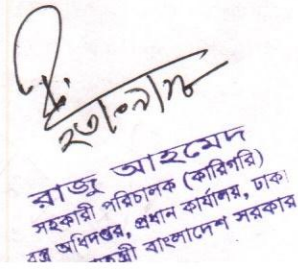 রাজু আহমেদ
সহকারী পরিচালক (কারিগরি)
বস্ত্র অধিদপ্তর, প্রধান কার্যালয়, ঢাকা
বাংলাদেশ সরকার